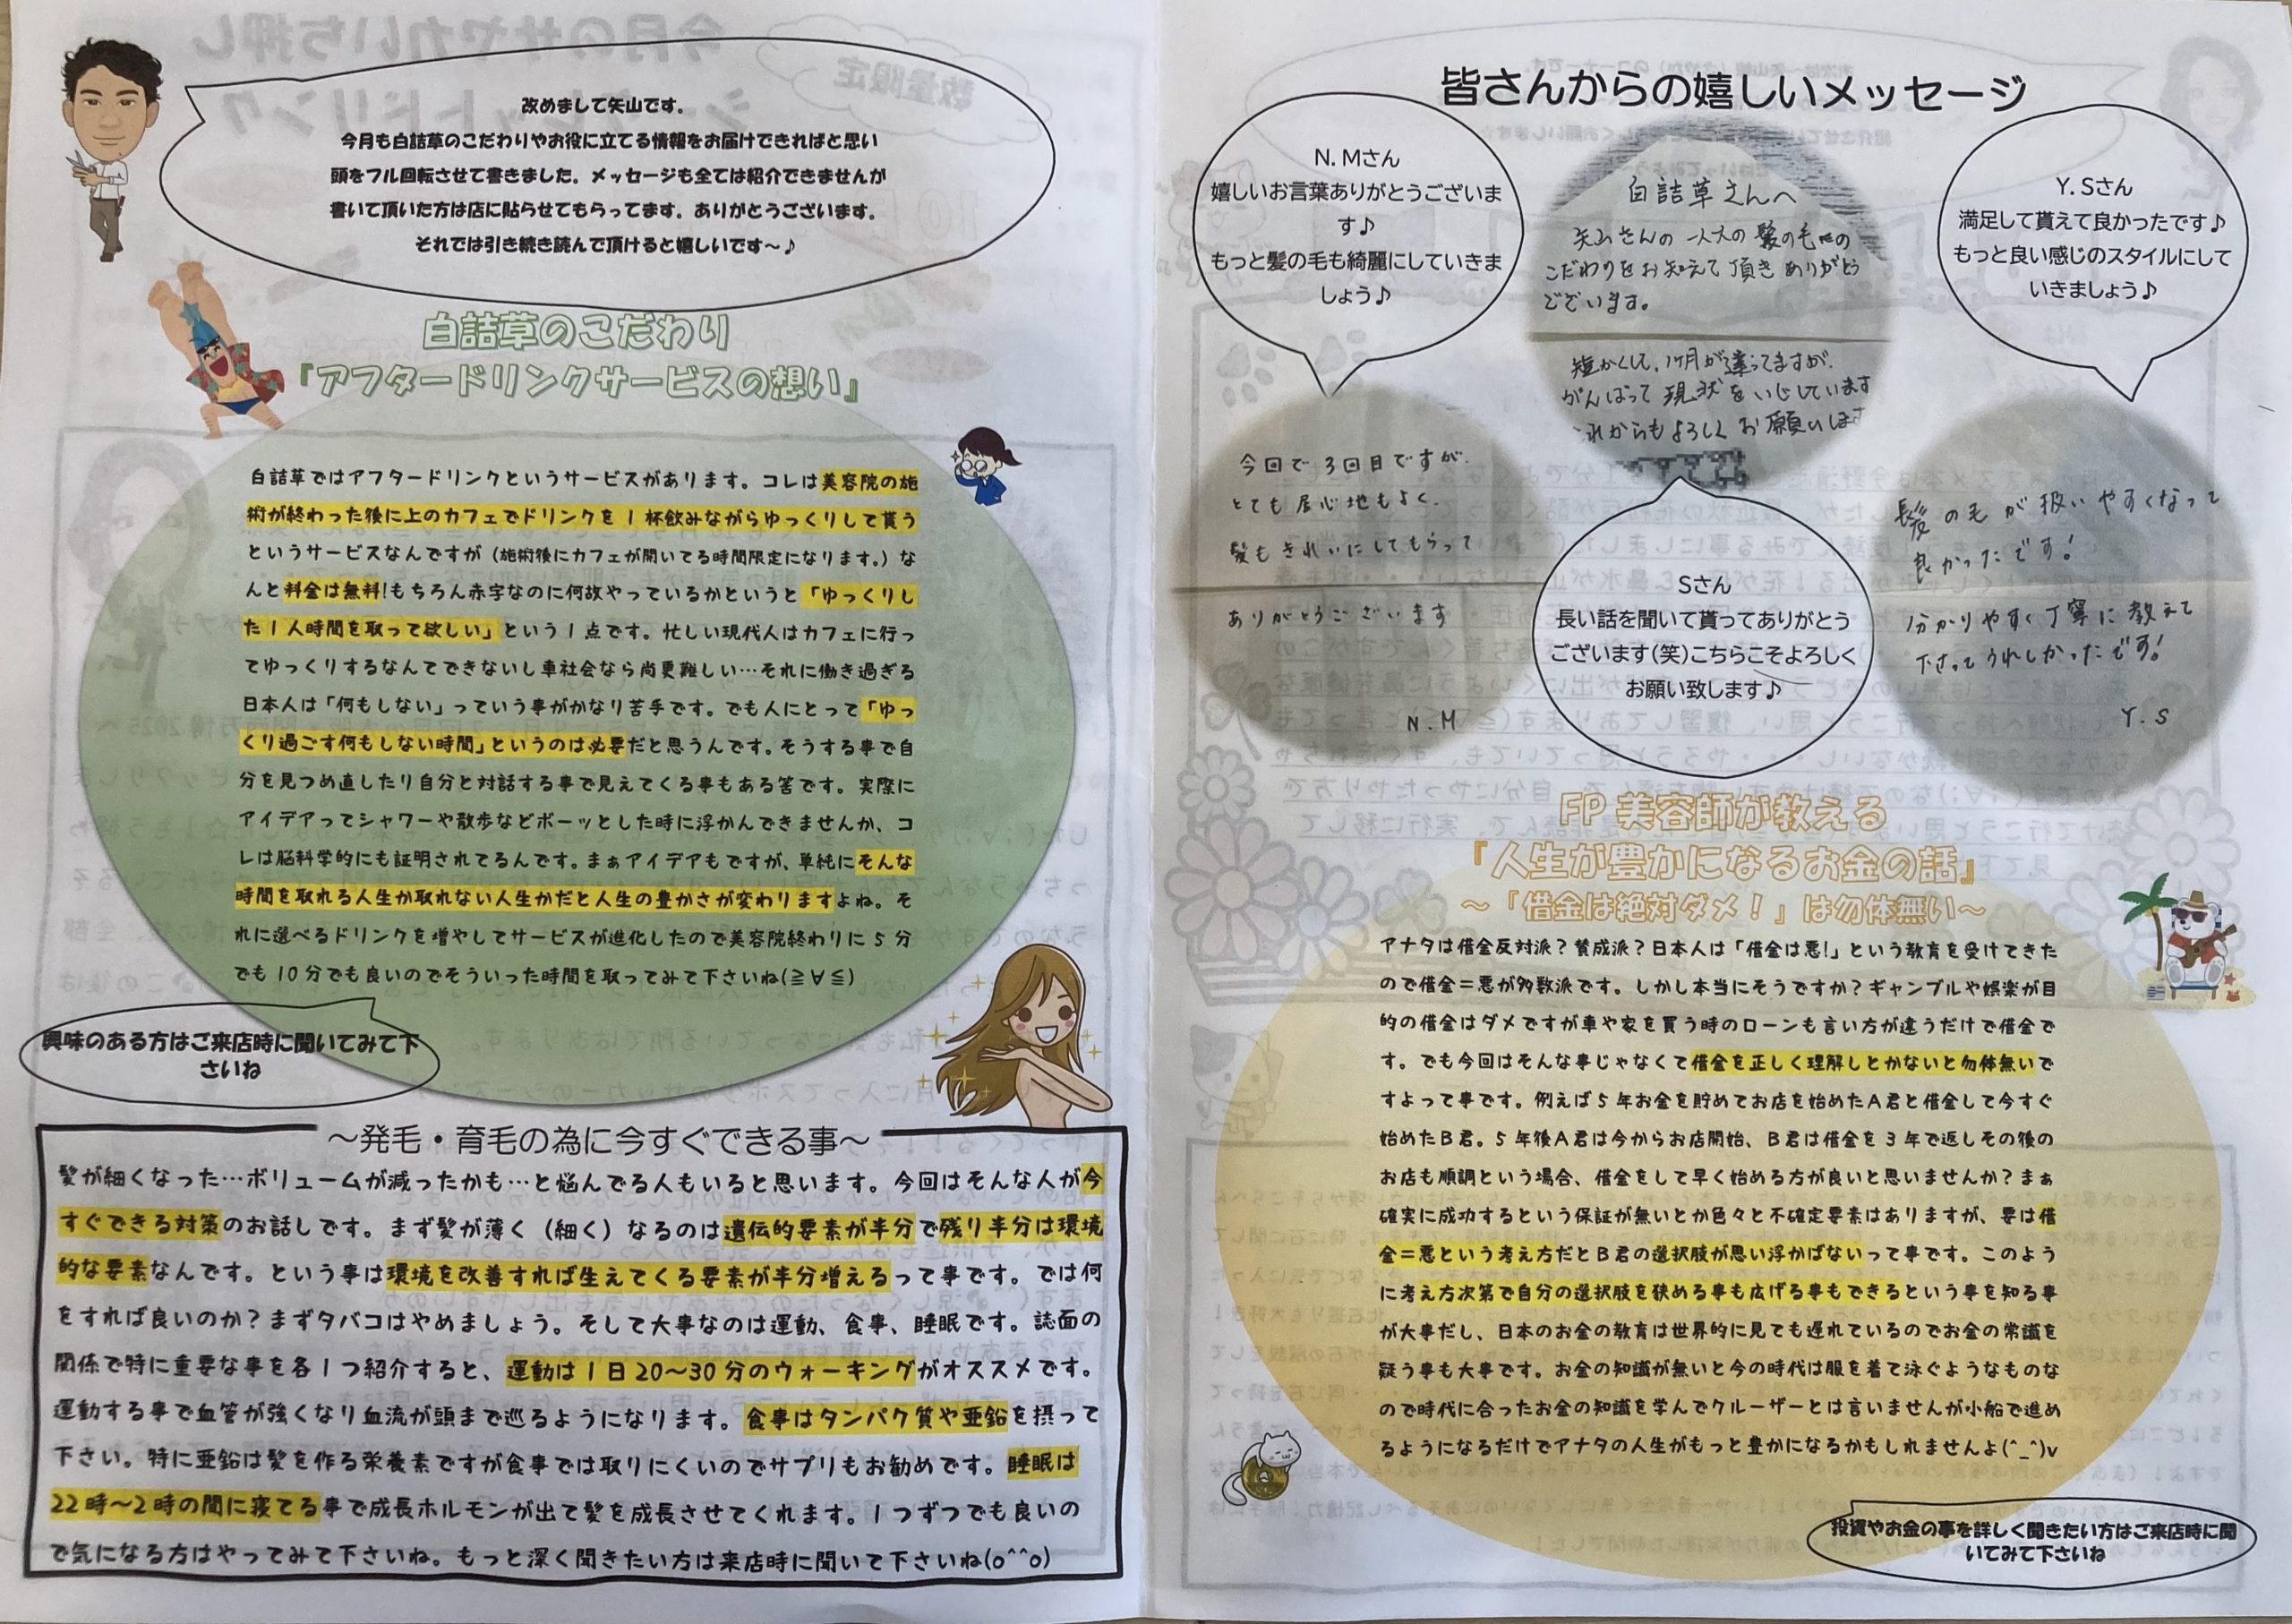 改めまして矢山です。
今月も白詰草のこだわりやお役に立てる情報をお届けできればと思い
頭をフル回転させて書きました。メッセージも全ては紹介できませんが
書いて頂いた方は店に貼らせてもらってます。ありがとうございます。
それでは引き続き読んで頂けると嬉しいです～♪
白詰草のこだわり
『アフタードリンクサービスの想い』
白詰草ではアフタードリンクというサービスがあります。コレは美容院の施
術が終わった後に上のカフェでドリンクを1杯飲みながらゆっくりして貰う
というサービスなんですが（施術後にカフェが開いてる時間限定になります。）な
んと料金は無料!もちろん赤字なのに何故やっているかというと「ゆっくりし
た1人時間を取って欲しい」という1点です。忙しい現代人はカフェに行っ
てゆっくりするなんてできないし車社会なら尚更難しい…それに働き過ぎる
日本人は「何もしない」っていう事がかなり苦手です。でも人にとって「ゆっ
くり過ごす何もしない時間」というのは必要だと思うんです。そうする事で自
分を見つめ直したり自分と対話する事で見えてくる事もある筈です。実際に
アイデアってシャワーや散歩などボーッとした時に浮かんできませんか、コ
レは脳科学的にも証明されてるんです。まぁアイデアもですが、単純にそんな
時間を取れる人生か取れない人生かだと人生の豊かさが変わりますよね。そ
れに選べるドリンクを増やしてサービスが進化したので美容院終わりに5分
でも10分でも良いのでそういった時間を取ってみて下さいね(≧∀≦)
興味のある方はご来店時に聞いてみて下
さいね
～発毛・育毛の為に今すぐできる事～
髪が細くなった…ボリュームが減ったかも…と悩んでる人もいると思います。今回はそんな人が今
すぐできる対策のお話しです。まず髪が薄く（細く）なるのは遺伝的要素が半分で残り半分は環境
的な要素なんです。という事は環境を改善すれば生えてくる要素が半分増えるって事です。では何
をすれば良いのか？まずタバコはやめましょう。そして大事なのは運動、食事、睡眠です。誌面の
関係で特に重要な事を各1つ紹介すると、運動は1日20～30分のウォーキングがオススメです。
運動する事で血管が強くなり血流が頭まで巡るようになります。食事はタンパク質や亜鉛を摂って
下さい。特に亜鉛は髪を作る栄養素ですが食事では取りにくいのでサプリもお勧めです。睡眠は
22時～2時の間に寝てる事で成長ホルモンが出て髪を成長させてくれます。1つずつでも良いの
で気になる方はやってみて下さいね。もっと深く聞きたい方は来店時に聞いて下さいね(o^^o)
皆さんからの嬉しいメッセージ
N.Mさん
嬉しいお言葉ありがとうございま
す♪
もっと髪の毛も綺麗にしていきま
しょう♪
白詰草さんへ
矢山さんの 一人一人の 髪の毛への
こだわりをお知えて 頂き ありがとう
ございます。
短かくして、1ヶ月が違ってますが、
がんばって 現状 を いじしています
これからも よろしく お願いします
Y.Sさん
満足して貰えて良かったです♪
もっと良い感じのスタイルにして
いきましょう♪
今回で 3回目ですが、
とても 居心地もよく、
髪も きれいにしてもらって
ありがとうございます
N.M
Sさん
長い話を聞いて貰ってありがとう
ございます(笑)こちらこそよろしく
お願い致します♪
髪の毛が扱いやすくなって
良かったです!
分かりやすく丁寧に教えて
下さってうれしかったです!
Y.S
FP美容師が教える
『人生が豊かになるお金の話』
～「借金は絶対ダメ！」は勿体無い～
アナタは借金反対派？賛成派？日本人は「借金は悪!」という教育を受けてきた
ので借金＝悪が多数派です。しかし本当にそうですか？ギャンブルや娯楽が目
的の借金はダメですが車や家を買う時のローンも言い方が違うだけで借金で
す。でも今回はそんな事じゃなくて借金を正しく理解しとかないと勿体無いで
すよって事です。例えば5年お金を貯めてお店を始めたA君と借金して今すぐ
始めたB君。5年後A君は今からお店開始、B君は借金を3年で返しその後の
お店も順調という場合、借金をして早く始める方が良いと思いませんか？まぁ
確実に成功するという保証が無いとか色々と不確定要素はありますが、要は借
金＝悪という考え方だとB君の選択肢が思い浮かばないって事です。このよう
に考え方次第で自分の選択肢を狭める事も広げる事もできるという事を知る事
が大事だし、日本のお金の教育は世界的に見ても遅れているのでお金の常識を
疑う事も大事です。お金の知識が無いと今の時代は服を着て泳ぐようなものな
ので時代に合ったお金の知識を学んでクルーザーとは言いませんが小船で進め
るようになるだけでアナタの人生がもっと豊かになるかもしれませんよ(^_^)v
投資やお金の事を詳しく聞きたい方はご来店時に聞
いてみて下さいね